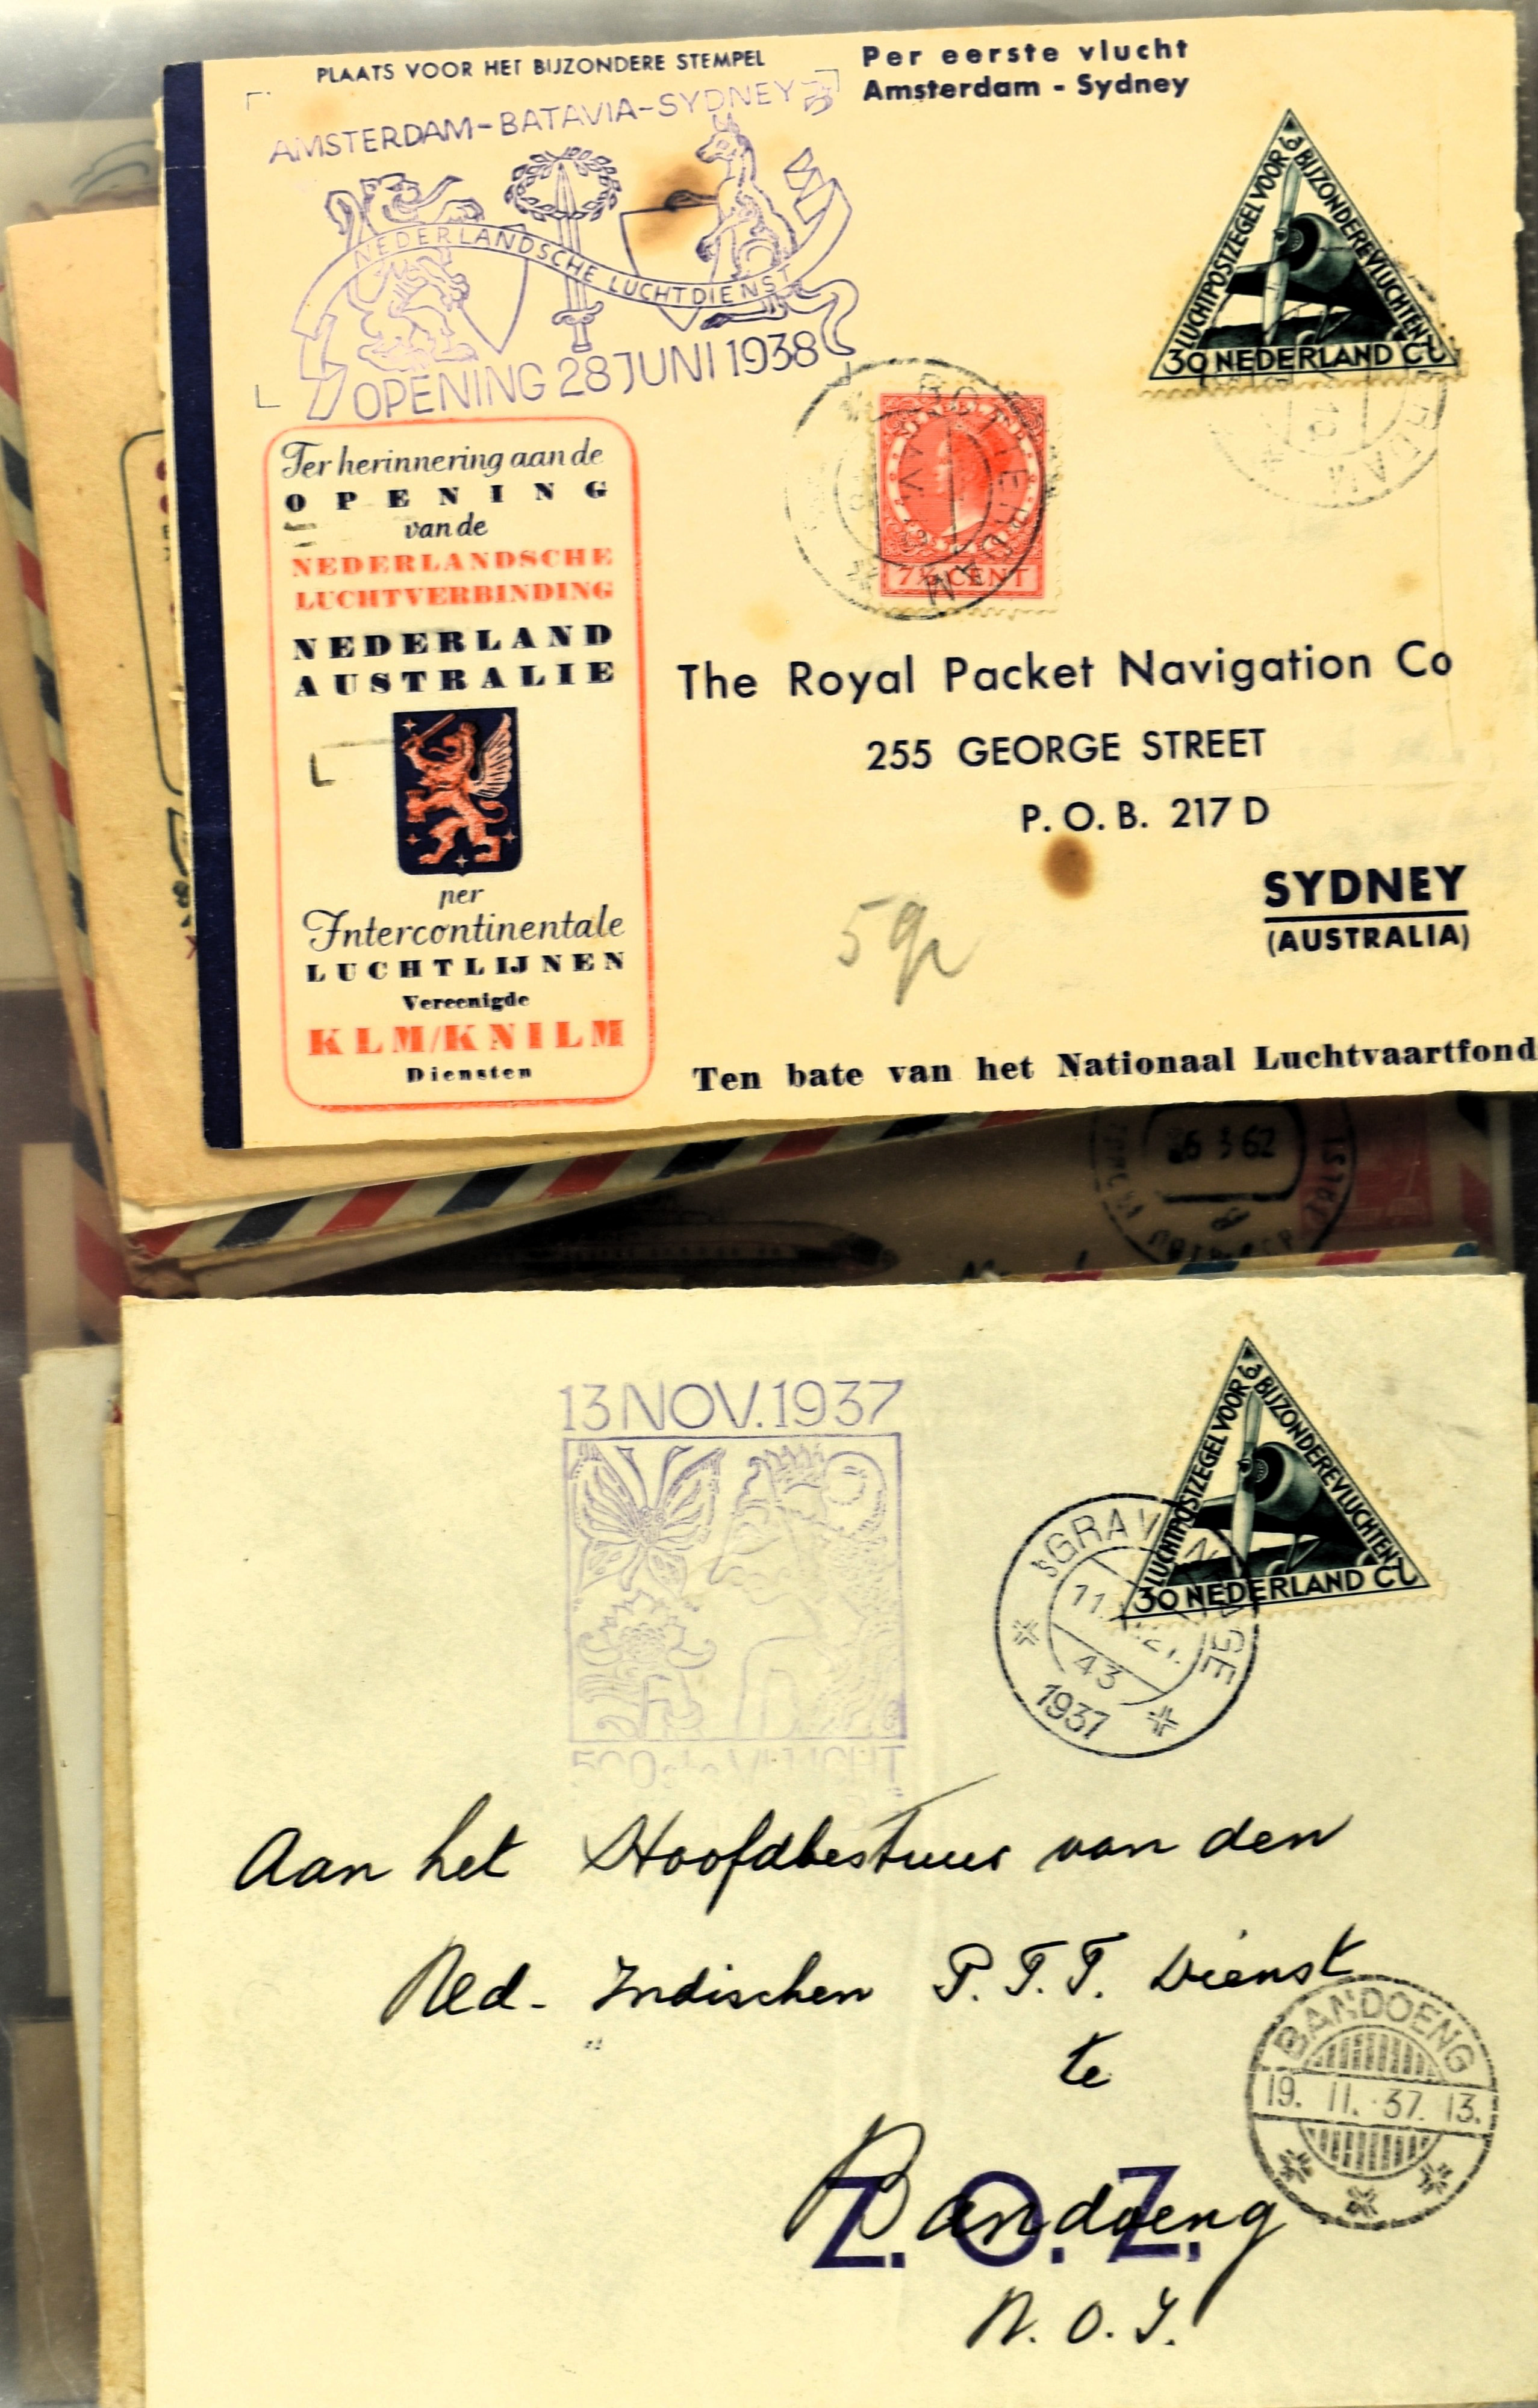 PLAATS VOOR HET BIJZONDERE STEMPEL
Per eerste vlucht
Amsterdam - Sydney
AMSTERDAM-BATAVIA-SYDNEY
NEDERLANDSCHE LUCHTDIENST
OPENING 28 JUNI 1938
LUCHTPOSTZEGEL VOOR BIJZONDERE VLUCHTEN
30 NEDERLAND CT
ROTTERDAM
7½ CENT
RDAM
Ter herinnering aan de
OPENING
van de
NEDERLANDSCHE
LUCHTVERBINDING
NEDERLAND
AUSTRALIE
per
Intercontinentale
LUCHTLIJNEN
Vereenigde
KLM/KNILM
Diensten
The Royal Packet Navigation Co
255 GEORGE STREET
P. O. B. 217 D
SYDNEY
(AUSTRALIA)
5 gr
Ten bate van het Nationaal Luchtvaartfonds
6 3 62
13 NOV. 1937
500ste VLUCHT
LUCHTPOSTZEGEL VOOR BIJZONDERE VLUCHTEN
30 NEDERLAND CT
'SGRAVENHAGE
43
1937
Aan het Hoofdbestuur van den
Ned- Indischen P.T.T. Dienst
te
BANDOENG
19. 11. 37. 13.
Bandoeng
Z. O. Z.
N. O. I.